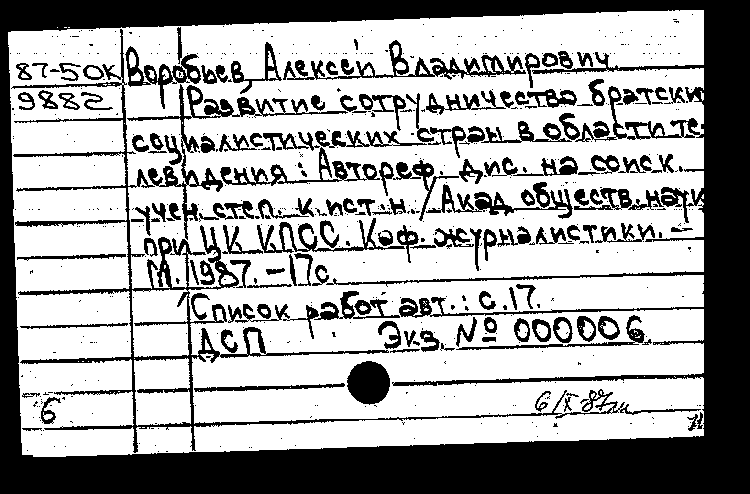 87-50К Воробьев, Алексей Владимирович.
9882 Развитие сотрудничества братски
социалистических стран в области те-
левидения : Автореф. дис. на соиск.
учен. степ. к.ист.н. / Акад. обществ. наук
при ЦК КПСС. Каф. журналистики. —
М. 1987. - 17 с.
Список работ авт.: с. 17.
ДСП Экз. № 000006
6 6/X 87